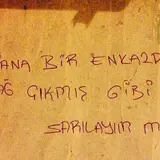 ANA BİR ENKAZD
AĞ ÇIKMIŞ GİBİ
SARILAYIM M